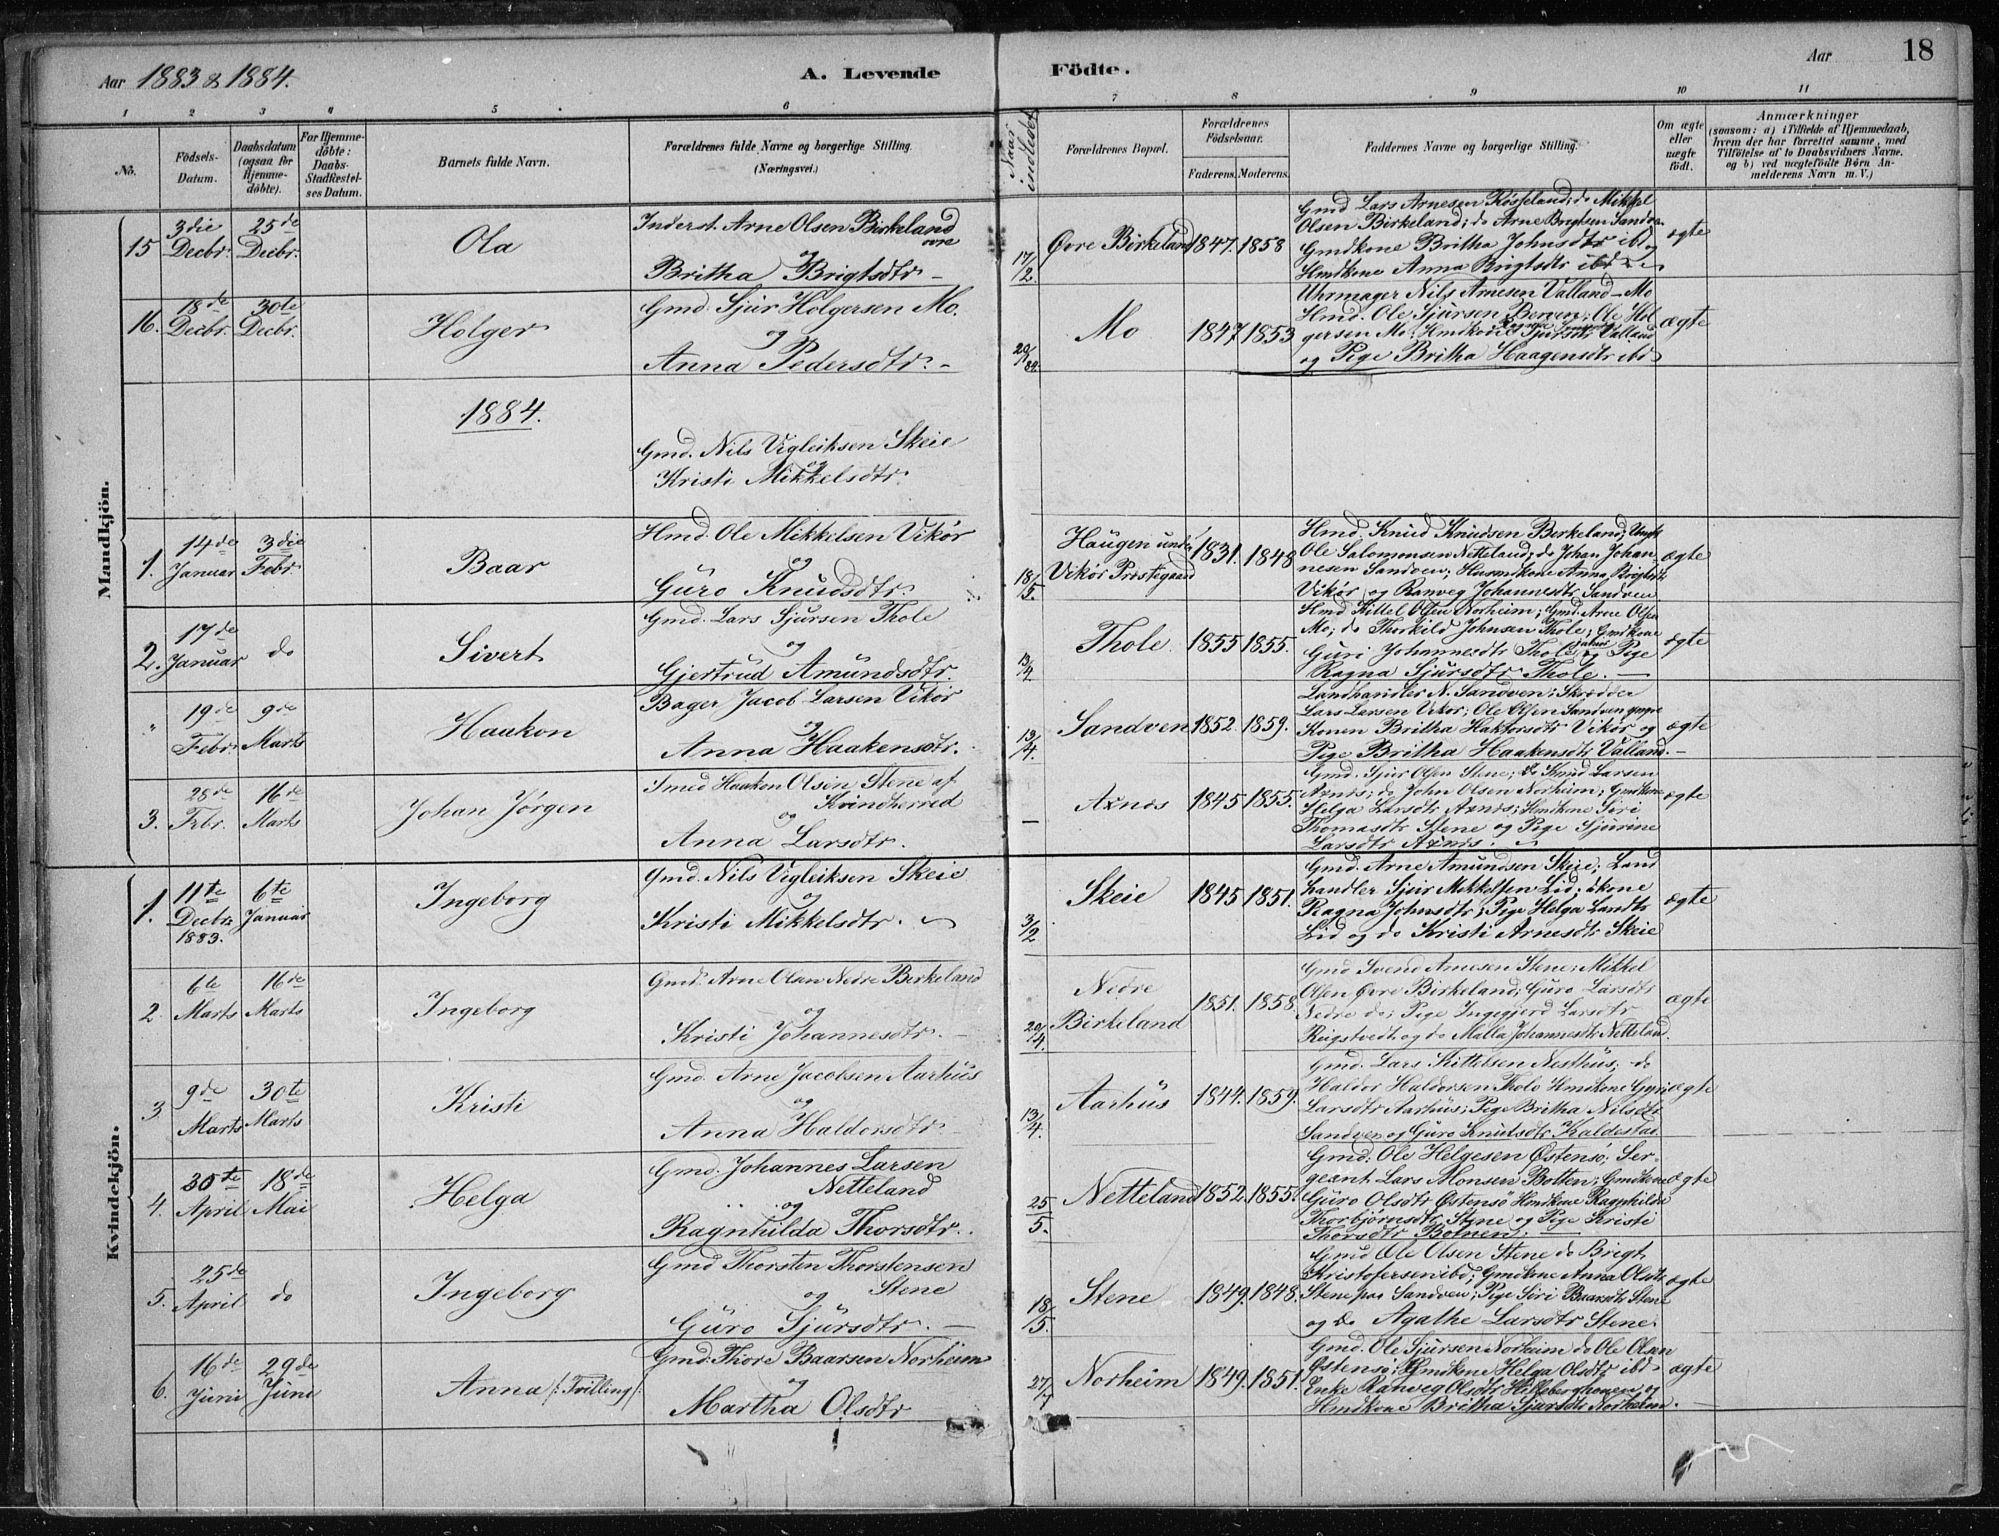 Aar 1883 & 1884.
A. Levende
Födte.
Aar
18
1
2
3
4
5
6
7
8
9
10
11
No.
Födsels-
Datum.
Daabsdatum
(ogsaa for
Hjemme-
döbte).
For Hjemme-
döbte:
Daabs-
Stadfæstel-
ses Datum.
Barnets fulde Navn.
Forældrenes fulde Navne og borgerlige Stilling.
(Næringsvei.)
Naar
indledet
Forældrenes Bopæl.
Forældrenes
Födselsaar.
Faderens.
Moderens.
Faddernes Navne og borgerlige Stilling.
Om ægte
eller
uægte
født.
Anmærkninger
(saasom: a) i Tilfælde af Hjemmedaab,
hvem der har forrettet samme, med
Tilföielse af to Daabsvidners Navne.
og b) ved uægtefödte Börn An-
melderens Navn m. V.)
Mandkjön.
15
3die
Decbr.
25de
Decbr.
Ola
Inderst. Arne Olsen Birkeland
øvre
og
Britha Brigtsdtr. –
17/2
Øvre Birkeland
1847.
1858
Gmd Lars Arnesen Røsseland; do Mikkel
Olsen Birkeland; do Arne Brigtsen Sandven
Gmdkone Britha Johnsdtr ibd og
Hmdkone Anna Brigtsdtr ibd
ægte
16.
18de
Decbr.
30te
Decbr.
Holger
Gmd. Sjur Holgersen Mo.
og
Anna Pedersdtr. –
20/
Mo
1847
1853
Uhrmager Nils Arnesen Valland – Mo
Hmd. Ole Sjursen Berven; Ole Hol-
gersen Mo; Hmdkone Sjursdtr Valland
og Pige Britha Haagensdtr ibd
ægte
1884.
Gmd. Nils Vigleiksen Skeie
og
Kristi Mikkelsdtr.
1.
14de
Januar
3die
Febr.
Baar
Hmd. Ole Mikkelsen Vikør
og
Guro Knudsdtr.
18/5
Haugen under
Vikør Præstegaard
1831.
1848
Hmd. Knud Knudsen Birkeland; Ungk
Ole Salomonsen Netteland; do Johan Johan-
nesen Sandven; Husmdkone Anna Brigtsdtr
Vikør og Ranveg Johannesdtr Sandven
ægte
2.
17de
Januar
do
Sivert
Gmd. Lars Sjursen Thole
og
Gjertrud Amundsdtr.
13/4
Thole
1855
1855.
Hmd Kittel Olsen Norheim; Gmd. Arne Olsen
Mo; do Thorkild Johnsen Thole; Gmdkone
Guri Johannesdtr Thole og Pige
Ragna Sjursdtr Thole. –
ægte
"
19de
Febr.
9de
Marts
Haakon
Bager Jacob Larsen Vikør
og
Anna Haakensdtr.
13/4.
Sandven
1852.
1859.
Landhandler N. Sandven; Skrædder
Lars Larsen Vikør; Ole Olsen Sandven yngre
Konen Britha Hakforsdtr Vikør og
Pige Britha Haakensdtr Valland. –
ægte
3.
28de
Febr.
16de
Marts
Johan Jørgen
Smed Haakon Olsen Stene af
Kvindherred
og
Anna Larsdtr.
–
Axnæs
1845
1855.
Gmd. Sjur Olsen Stene; do Knud Larsen
Axnæs; do John Olsen Norheim; Gmdkone
Helga Larsdtr Axnæs; Hmdkone Siri
Thomasdtr Stene og Pige Sjurine
Larsdtr Axnæs.
ægte
Kvindekjön.
1.
11te
Decbr.
1883.
6te
Januar
Ingeborg
Gmd. Nils Vigleiksen Skeie
og
Kristi Mikkelsdtr.
3/2
Skeie
1845
1851.
Gmd. Arne Amundsen Skeie; Land
handler Sjur Mikkelsen Lid; dkone
Ragna Johnsdtr; Pige Helga Larsdtr
Lid og do Kristi Arnesdtr Skeie
ægte
2
6te
Marts
16de
Marts
Ingeborg
Gmd. Arne Olsen Nedre Birkeland
og
Kristi Johannesdtr. –
20/4.
Nedre
Birkeland
1851.
1858.
Gmd Svend Arnesen Stene; Mikkel
Olsen Øvre Birkeland; Guro Larsdtr
Nedre do; Pige Ingegjerd Larsdtr
Reigstvedt og do Malla Johannesdtr Netteland.
ægte
3
9de
Marts
30te
Marts
Kristi
Gmd. Arne Jacobsen Aarhus
og
Anna Haldorsdtr. –
13/4.
Aarhus
1844.
1859.
Gmd. Lars Kittelsen Nesthus; do
Haldor Haldorsen Tholo Hmdkone Gyri
Larsdtr Aarhus; Pige Britha Nilsdtr
Sandven og Guro Knutsdtr Kaldestad.
ægte
4.
30te
April
18de
Mai
Helga
Gmd. Johannes Larsen
Netteland
og
Ragnhilda Thorsdtr.
25/5.
Netteland
1852.
1855.
Gmd: Ole Helgesen Østensø; Ser-
geant Lars Monsen Botten; Gmdkone
Guro Olsdtr Østensø Hmdkone Ragnhilda
Thorbjørnsdtr Stene og Pige Kristi
Thorsdtr Botnen. –
ægte
5.
25de
April
do
Ingeborg
Gmd Thorsten Thorstensen
Stene
og
Guro Sjursdtr. –
18/5.
Stene
1849.
1848.
Gmd Ole Olsen Stene do Brigt
Kristofersen ibd; Gmdkone Anna Olsdtr
Stene paa Sandven; Pige Siri Baarsdtr Stene
og do Agathe Larsdtr Stene.
ægte
6.
16de
Juni
29de
Juni
Anna /: Tvilling :/
Gmd: Thore Baarsen Norheim
og
Martha Olsdtr
27/7
Norheim
1849.
1851.
Gmd. Ole Sjursen Norheim do Ole Olsen
Østensø; Gmdkone Helga Olsdtr ibd.
Enke Ranveg Olsdtr og
Hmdkone Britha Sjursdtr Norheim. –
ægte